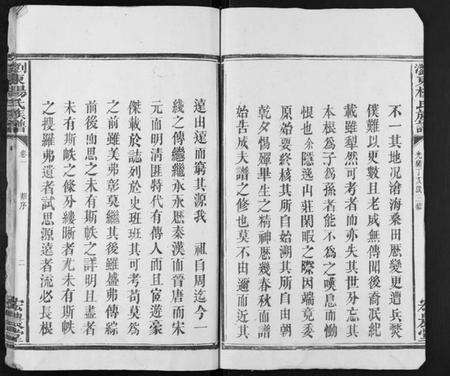 不一其地况滄海桑田歷變更遭兵燹
僕難以更數且老成無傳聞後裔氓紀
載雖犂然可考者而亦失其世分忘其
本根為子為孫者能不為之嘆息而慟
恨也余隱逸山莊閑暇之際因端竟委
原始要終核其所自始溯其所自由朝
乾夕惕殫畢生之精神歷幾春秋而譜
始告成大譜之修也莫不由邇而近其
遠由遠而窮其源我 祖自周迄今一
綫之傳繼繼永永歷秦漢而晉唐而宋
元而明清匪特代有傳人而且宦遊豪
傑載於誌列於史班班其可考苟莫為
之前雖美弗彰莫繼其後雖盛弗傳綜
前後而思之未有斯帙之詳明且盡者
未有斯帙之條分縷晰者尤未有斯帙
之搜羅弗遺者試思源遠者流必長根
劉東楊氏族譜
卷一
源序
二
宏農堂